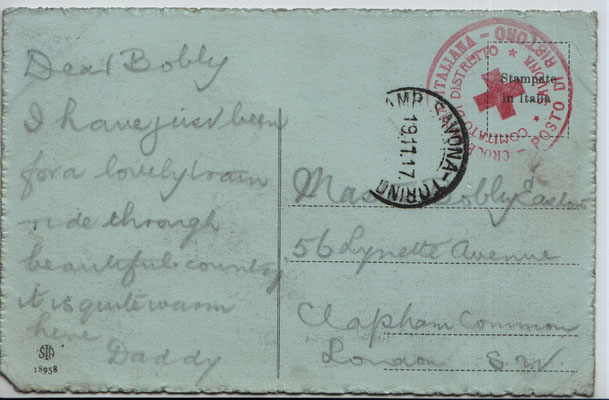 Dear Bobby
I have just been
for a lovely train
ride through
beautiful country
it is quite warm
here
Daddy
STA
18958
ITALIANA
CROCE
DISTRETTO
COMITATO
POSTO DI RISTORO
Stampate
in Italia
AMB. SAVONA-TORINO
19.11.17
Master Bobby Easton
56 Lynette Avenue
Clapham Common
London S.W.